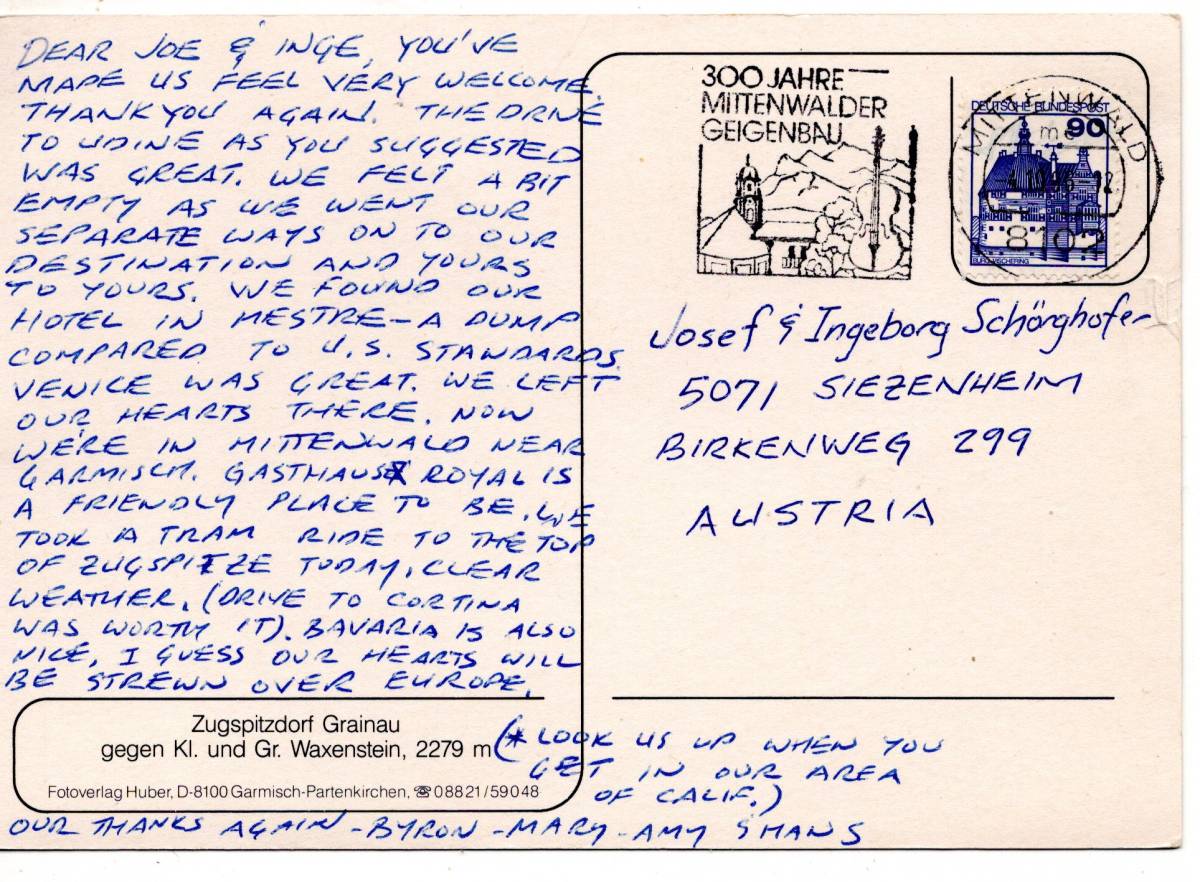 DEAR JOE & INGE, YOU'VE
MADE US FEEL VERY WELCOME.
THANK YOU AGAIN. THE DRIVE
TO UDINE AS YOU SUGGESTED
WAS GREAT. WE FELT A BIT
EMPTY AS WE WENT OUR
SEPARATE WAYS ON TO OUR
DESTINATION AND YOURS
TO YOURS. WE FOUND OUR
HOTEL IN MESTRE - A DUMP
COMPARED TO U.S. STANDARDS.
VENICE WAS GREAT. WE LEFT
OUR HEARTS THERE. NOW
WE'RE IN MITTENWALD NEAR
GARMISCH. GASTHAUS ROYAL IS
A FRIENDLY PLACE TO BE. WE
TOOK A TRAM RIDE TO THE TOP
OF ZUGSPITZE TODAY. CLEAR
WEATHER. (DRIVE TO CORTINA
WAS WORTH IT). BAVARIA IS ALSO
NICE. I GUESS OUR HEARTS WILL
BE STREWN OVER EUROPE.
Zugspitzdorf Grainau
gegen Kl. und Gr. Waxenstein, 2279 m
Fotoverlag Huber, D-8100 Garmisch-Partenkirchen, ☏ 08821/59048
(* LOOK US UP WHEN YOU
GET IN OUR AREA
OF CALIF.)
OUR THANKS AGAIN - BYRON - MARY - AMY & HANS
300 JAHRE
MITTENWALDER
GEIGENBAU
DEUTSCHE BUNDESPOST
90
MITTENWALD
8102
Josef & Ingeborg Schörghofer
5071 SIEZENHEIM
BIRKENWEG 299
AUSTRIA